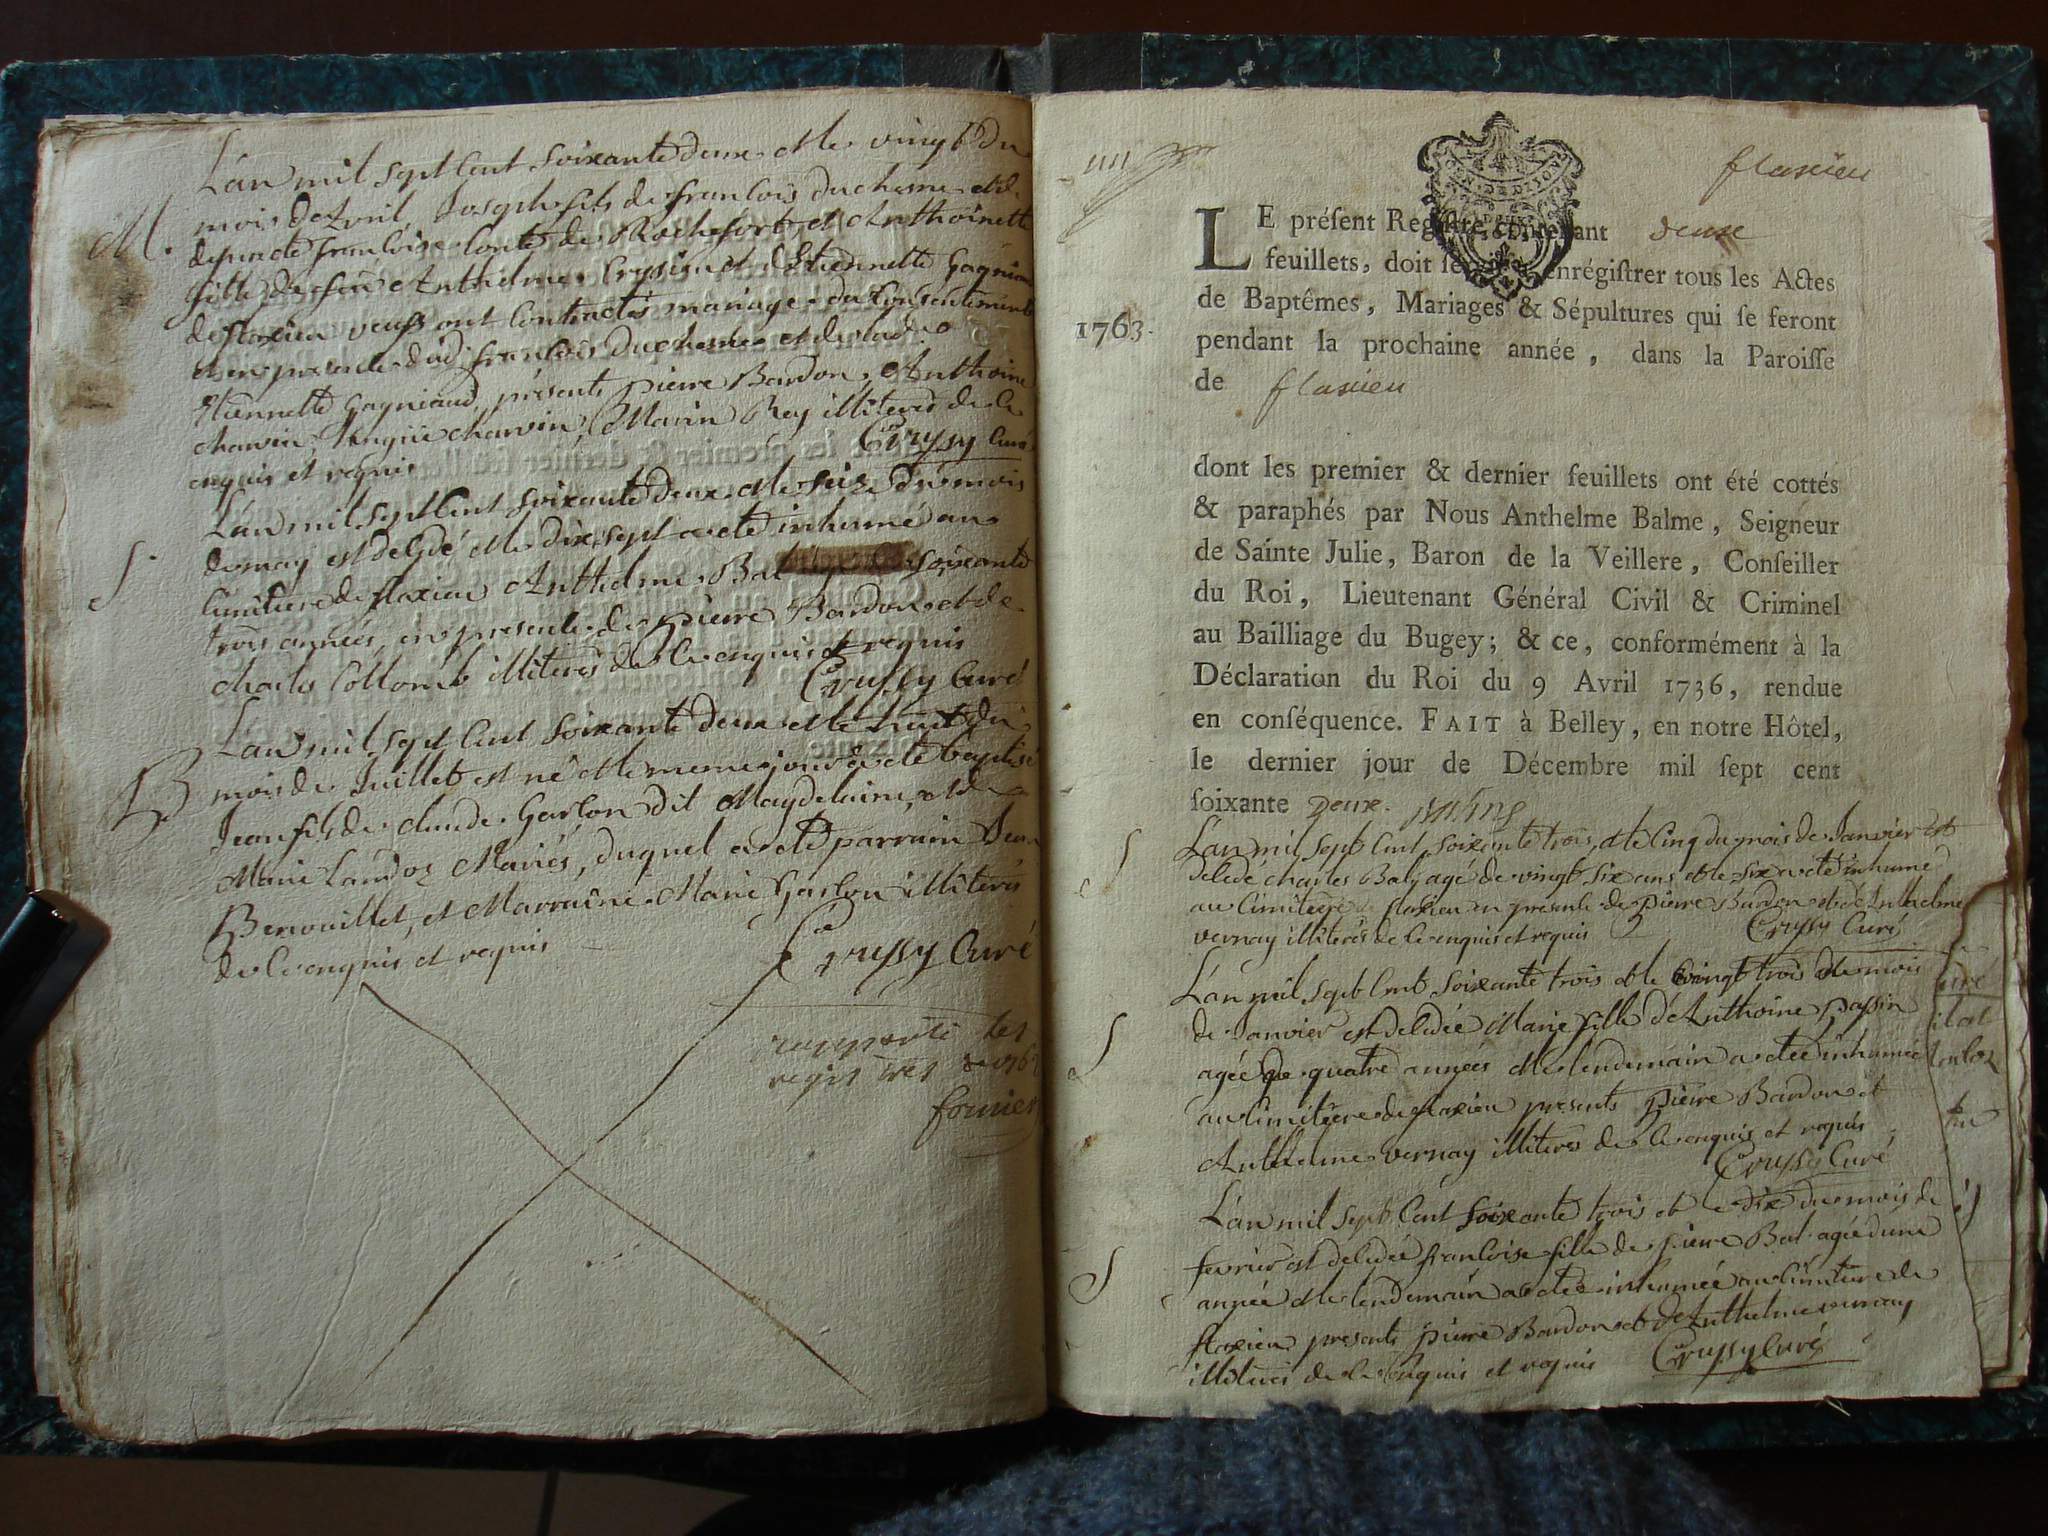 L'an mil sept cent soixante deux et le vingt du
M.
mois d'avril, Joseph fils de francois duchesne et de
defuncte francoise Conte de Rochefort, et Anthoinette
fille de feu Anthelme Crussy et d'Etiennette Gagniaud
de flaxieu veufs ont contractés mariage du consentement
et en presence dud. francois Duchesne et de lad.
Etiennette Gagniaud, présents pierre Bardon, Anthoine
charvin, charvin, Marin Rey illiteres de ce
enquis et requis
Crussy Curé
L'an mil sept cent soixante deux et le seize du mois
S
de may est decedé et le dix sept a eté inhumé au
cimitiere de flaxieu Anthelme Bal soixante
trois années, en presence de pierre Bardon et de
charles Collomb illiteres de ce enquis et requis
Crussy Curé
L'an mil sept cent soixante deux et le huit du
B
mois de Juillet est né et le meme jour a eté baptisé
Jean fils de claude Garlon dit Magdelaine, et de
Marie Landoz Mariés, duquel a eté parrain Jean
Berouillet, et Marraine Marie Garlon illiteres
de ce enquis et requis
Crussy Curé
rapporté les
registres de 1762
fornier
flaxieu
LE préſent Regiſtre, contenant deux
feuillets, doit ſervir à enrégiſtrer tous les Actes
de Baptêmes, Mariages & Sépultures qui ſe feront
1763.
pendant la prochaine année, dans la Paroiſſe
de flaxieu
dont les premier & dernier feuillets ont été cottés
& paraphés par Nous Anthelme Balme, Seigneur
de Sainte Julie, Baron de la Veillere, Conſeiller
du Roi, Lieutenant Général Civil & Criminel
au Bailliage du Bugey; & ce, conformément à la
Déclaration du Roi du 9 Avril 1736, rendue
en conſéquence. FAIT à Belley, en notre Hôtel,
le dernier jour de Décembre mil ſept cent
ſoixante deux.
L'an mil sept cent soixante trois, et le cinq du mois de Janvier est
S
decedé charles Bal agé de vingt six ans et le six a eté inhumé
au cimitiere de flaxieu en presence de pierre Bardon et de Anthelme
vernay illiterés de ce enquis et requis
Crussy Curé
L'an mil sept cent soixante trois et le vingt trois du mois
S
de Janvier est decedée Marie fille d'Anthoine passin
agée de quatre années et le lendemain a eté inhumée
au cimitiere de flaxieu presents pierre Bardon et
Anthelme vernay illiteres de ce enquis et requis
Crussy Curé
L'an mil sept cent soixante trois et le dix du mois de
S
fevrier est decedée francoise fille de pierre Bal agée dune
année et le lendemain a eté inhumée au cimitiere de
flaxieu presents pierre Bardon et de Anthelme vernay
illiteres de ce enquis et requis
Crussy Curé